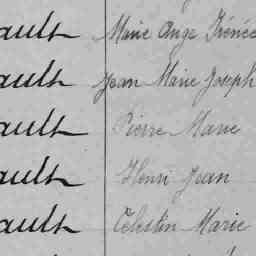 ault Marie Ange Irénée
ault Jean Marie Joseph
ault Pierre Marie
ault Henri Jean
ault Célestin Marie